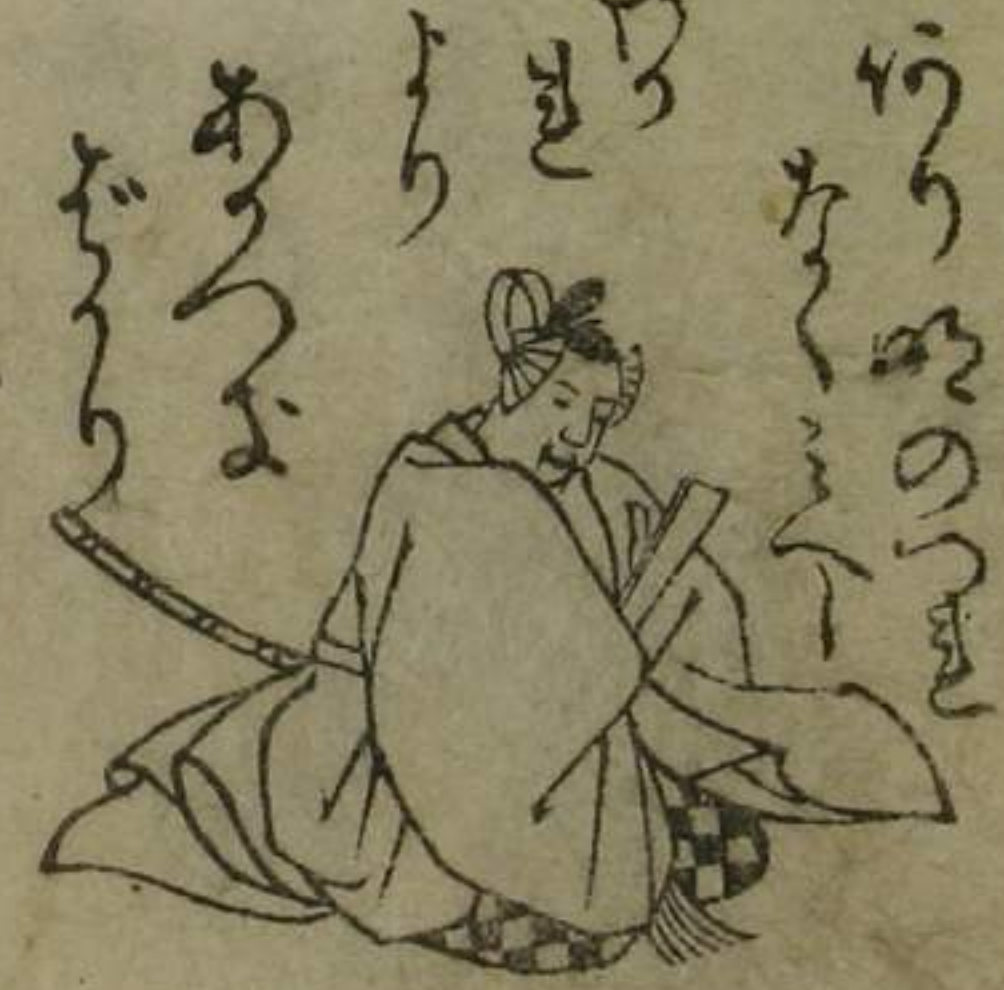 あり明のつれ
なくみへし
わか
れ
より
あかつき
ばかり